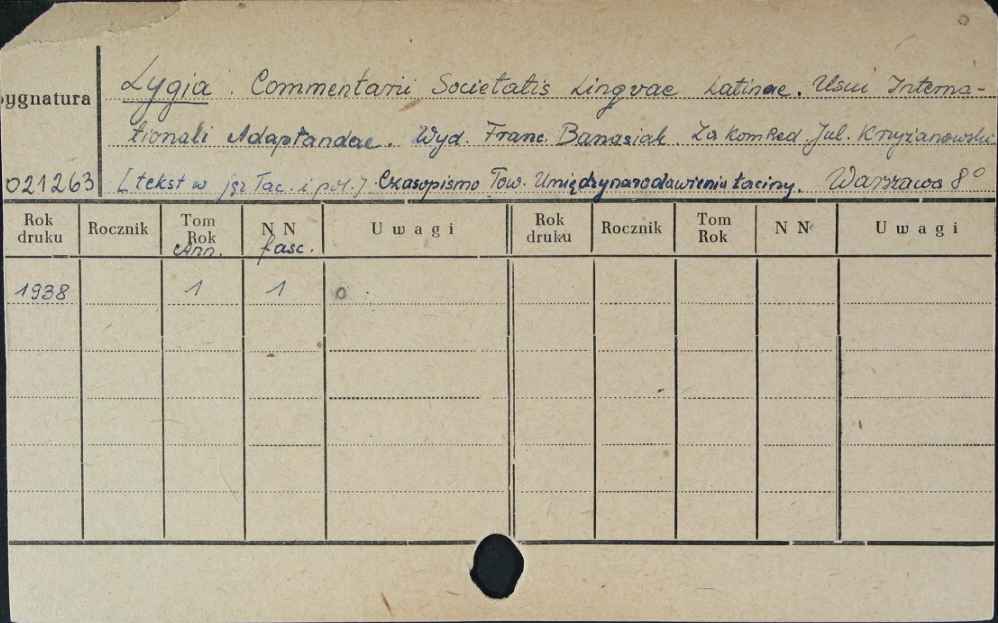 Lygia. Commentarii Societatis Lingvae Latinae. Usui Interna-
ygnatura
tionali Adaptandae. Wyd. Franc. Banasiak. Za kom Red. Jul. Krzyżanowski
021263
[tekst w jęz łac. i pol.] Czasopismo Tow. Umiędzynarodowienia Łaciny. Warszawa 8°
Rok druku Rocznik Tom Rok Ann. N N fasc. Uwagi Rok druku Rocznik Tom Rok N N Uwagi
1938 1 1 0